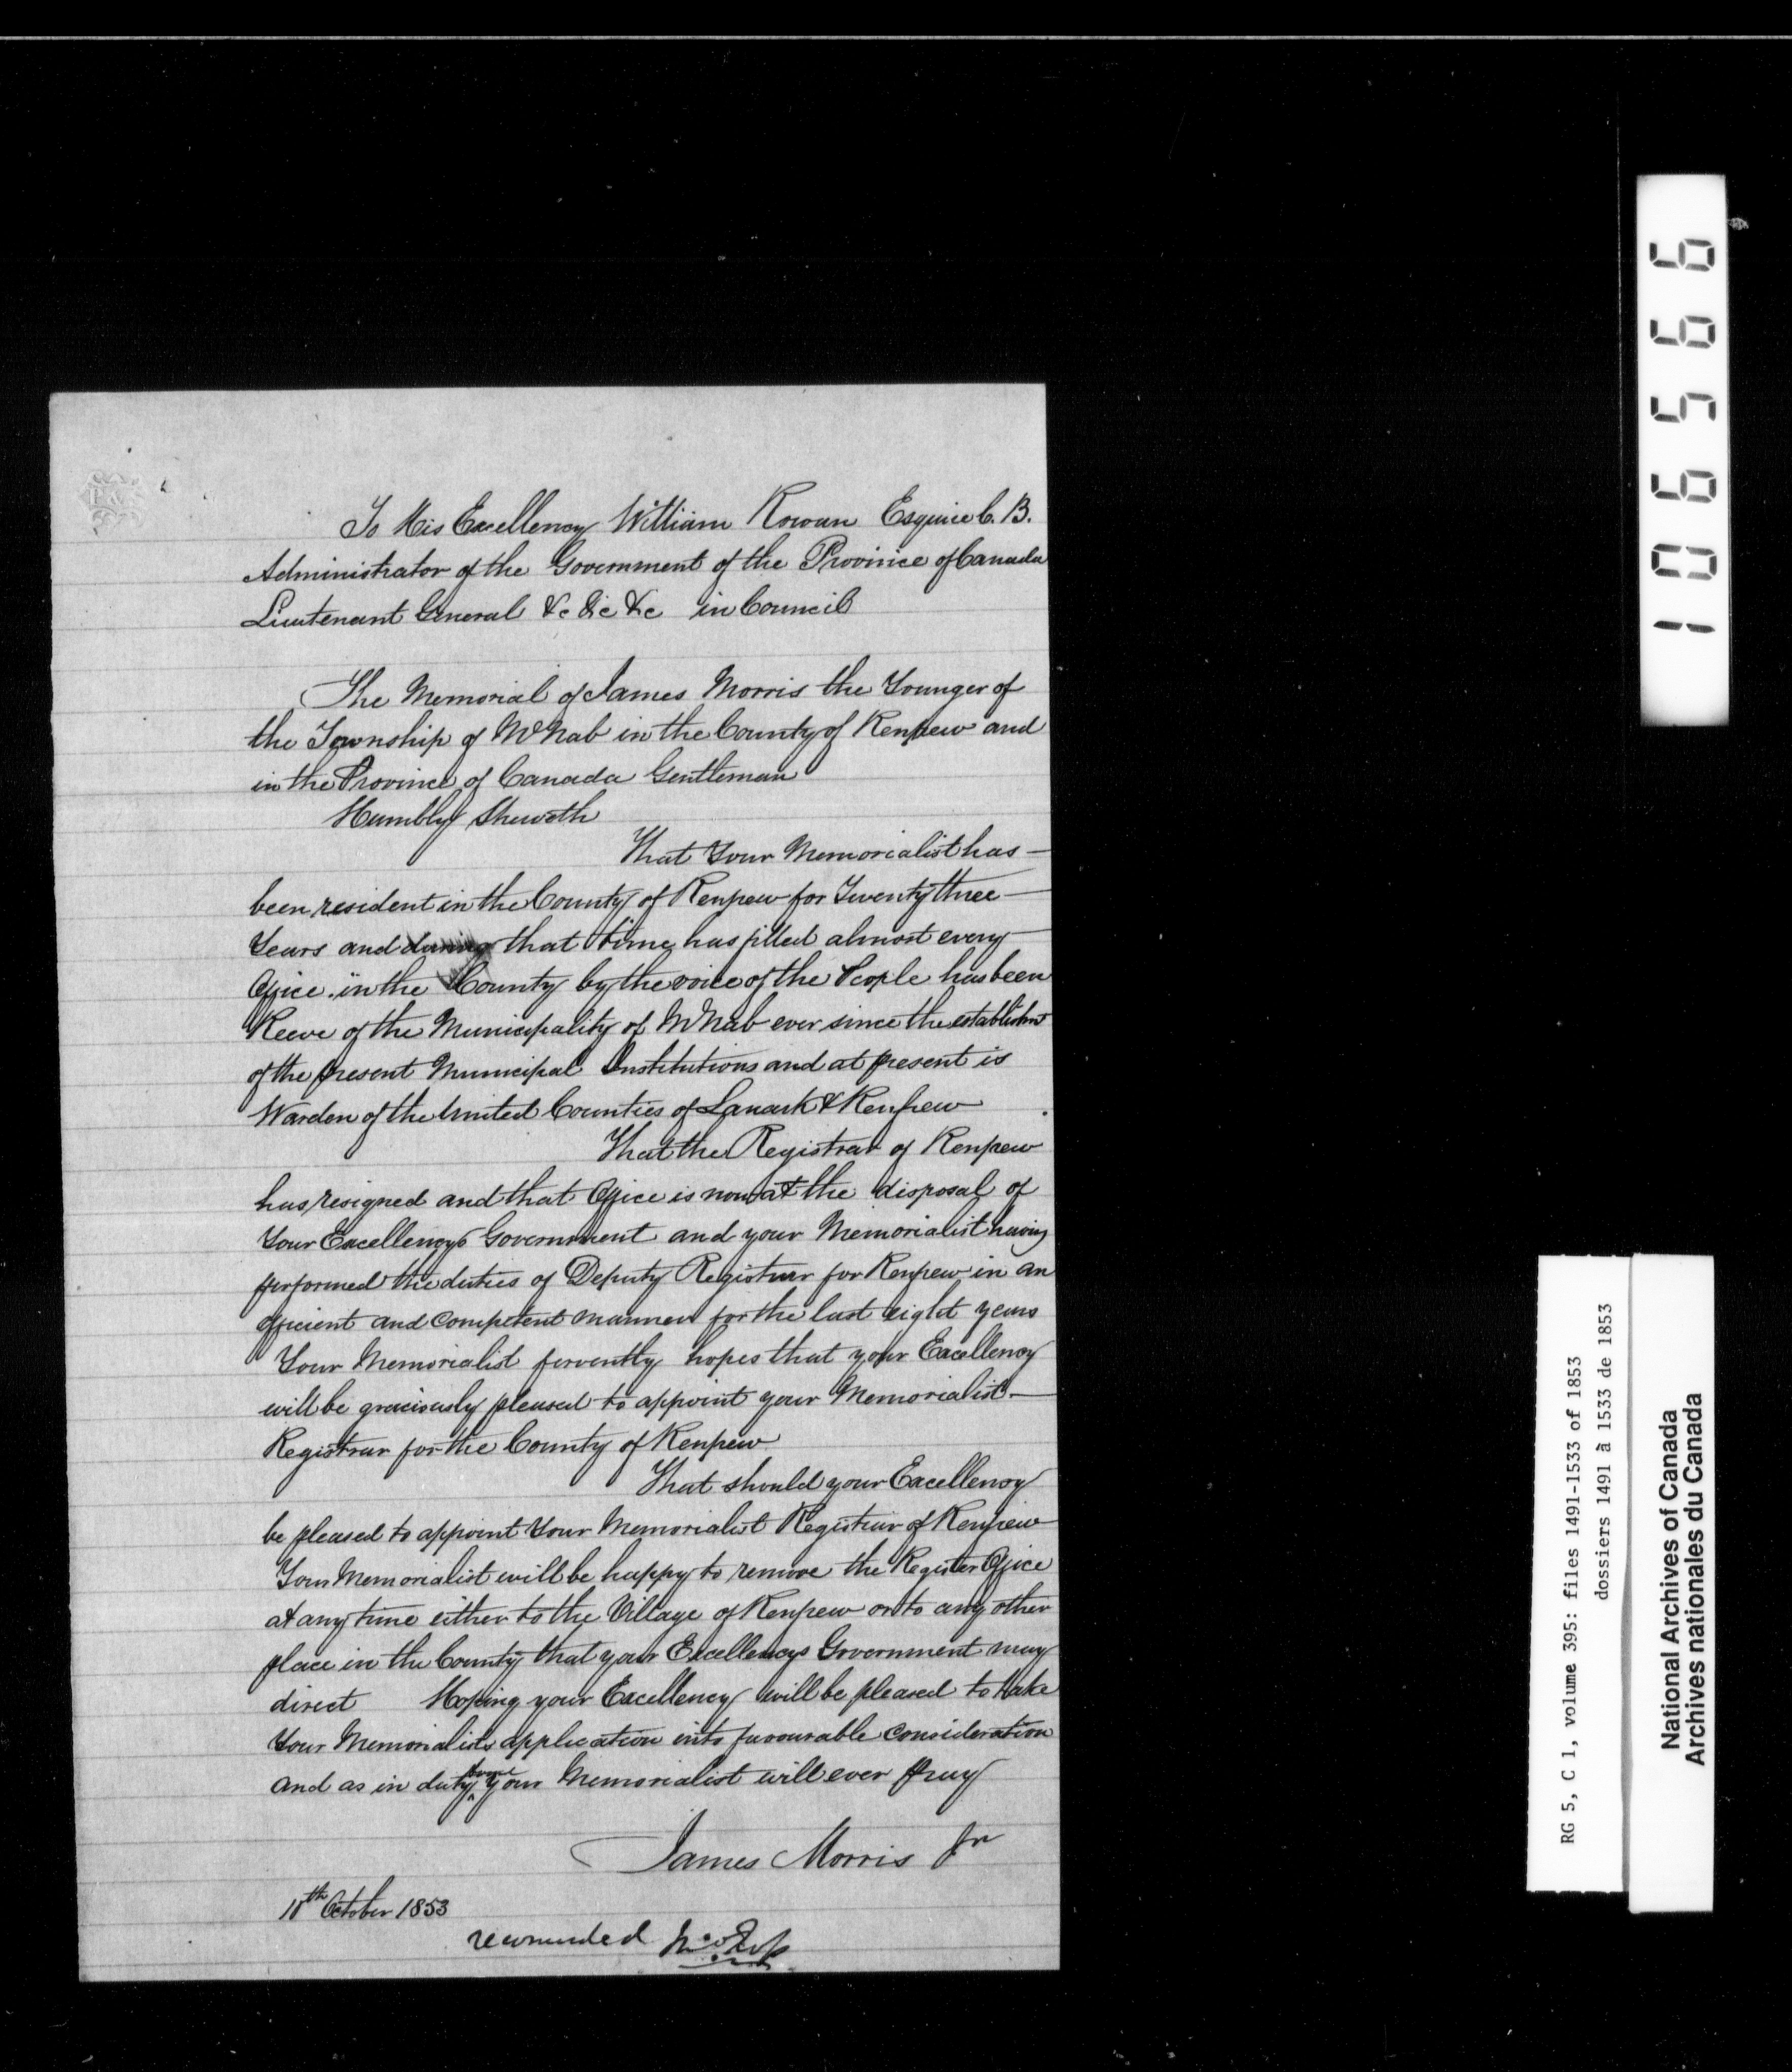 To His Excellency William Rowan Esquire C. B.
Administrator of the Government of the Province of Canada
Lieutenant General &c &c &c in Council
The Memorial of James Morris the Younger of
the Township of McNab in the County of Renfrew and
in the Province of Canada Gentleman
Humbly Sheweth
That Your Memorialist has —
been resident in the County of Renfrew for Twenty three —
Years and during that time has filled almost every —
Office in the County by the voice of the People has been
Reeve of the Municipality of McNab ever since the establishmt
of the present Municipal Institutions and at present is
Warden of the United Counties of Lanark & Renfrew
That the Registrar of Renfrew
has resigned and that Office is now at the disposal of
Your Excellencys Government and your Memorialist having
performed the duties of Deputy Registrar for Renfrew in an
efficient and competent manner for the last eight years
Your Memorialist fervently hopes that your Excellency
will be graciously pleased to appoint your Memorialist —
Registrar for the County of Renfrew
That should your Excellency
be pleased to appoint Your Memorialist Registrar of Renfrew
Your Memorialist will be happy to remove the Register Office
at any time either to the Village of Renfrew or to any other
place in the County that your Excellencys Government may
direct Hoping your Excellency will be pleased to take
Your Memorialists application into favourable consideration
and as in duty your Memorialist will ever Pray
James Morris Jr
October 1853
106566
RG 5, C 1, volume 395: files 1491-1533 of 1853
dossiers 1491 à 1533 de 1853
National Archives of Canada
Archives nationales du Canada